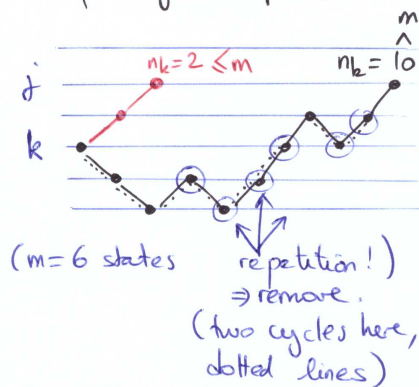 m
^
j n_k = 2 ≤ m n_k = 10
k
(m = 6 states repetition!)
⇒ remove.
(two cycles here,
dotted lines)